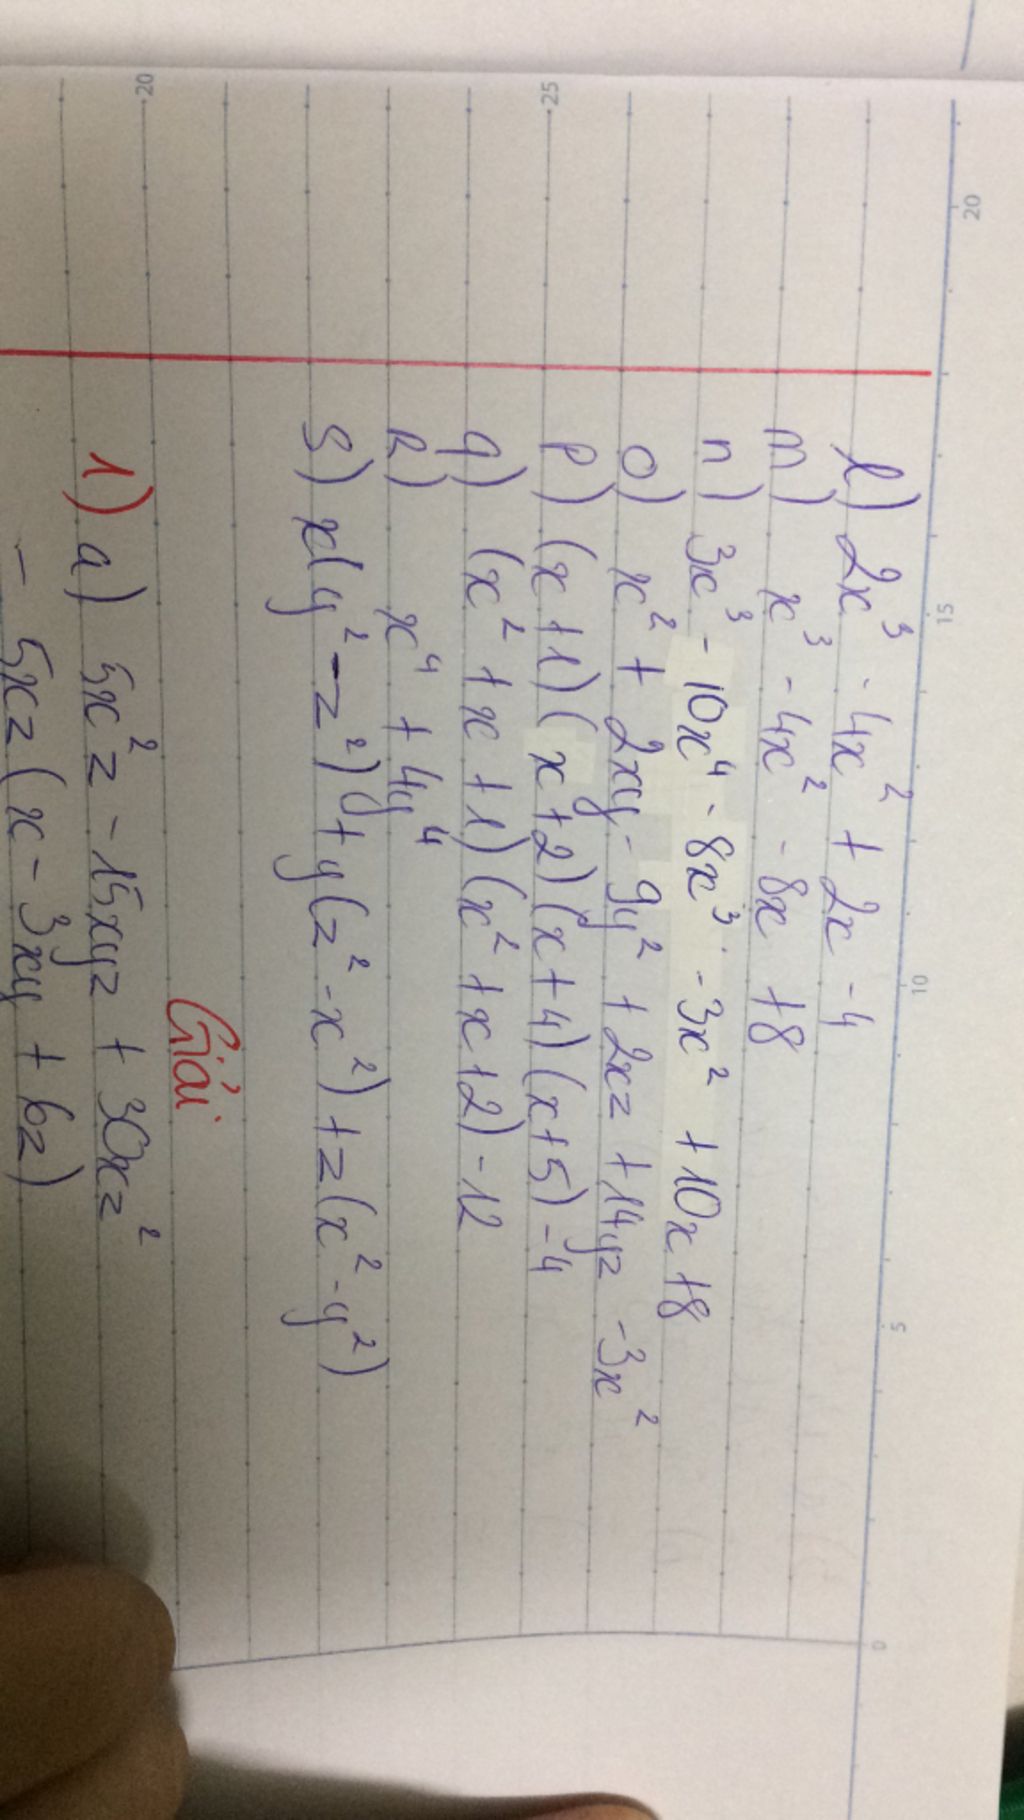 20 15 10 5 0
l) 2x³ - 4x² + 2x - 4
m) x³ - 4x² - 8x + 8
n) 3x³ - 10x⁴ - 8x³ - 3x² + 10x + 8
o) x² + 2xy - 9y² + 2xz + 14yz - 3x²
25
p) (x + 1)(x + 2)(x + 4)(x + 5) - 4
q) (x² + x + 1)(x² + x + 2) - 12
R) x⁴ + 4y⁴
S) x(y² - z²) + y(z² - x²) + z(x² - y²)
Giải
20
1) a) 5x²z - 15xyz + 30xz²
= 5xz(x - 3xy + 6z)